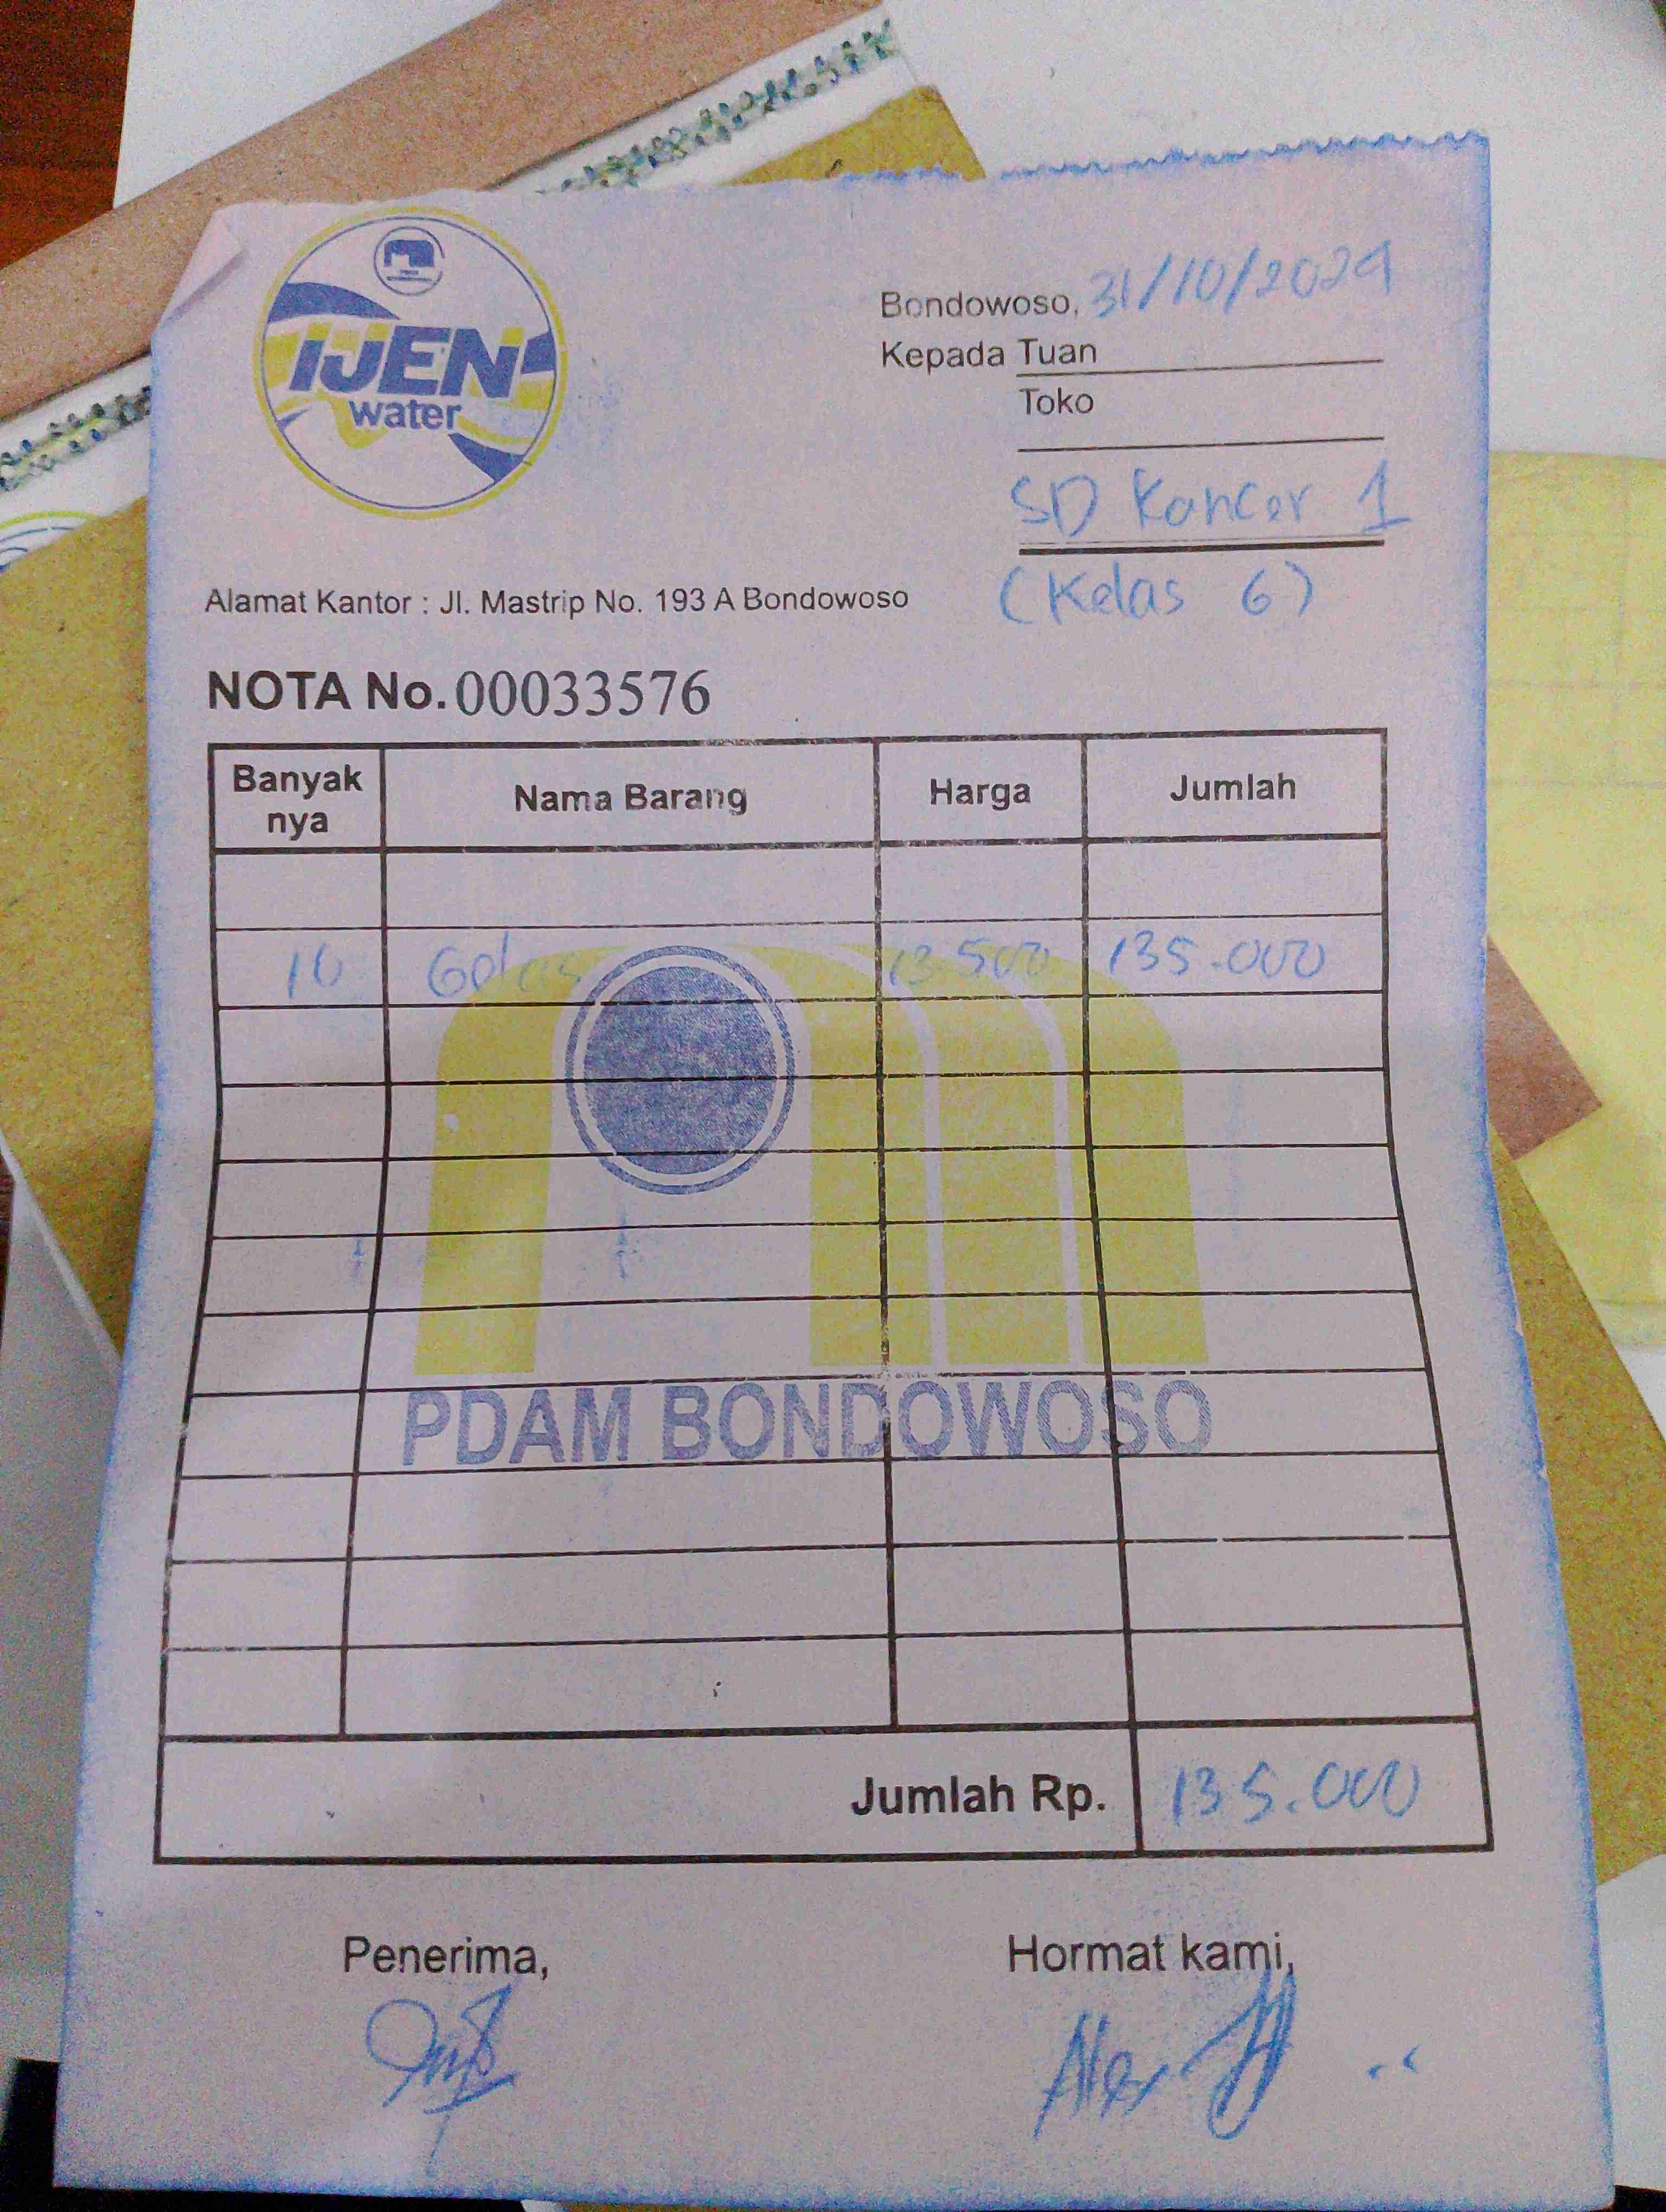 IJEN
water
Bondowoso, 31/10/2024
Kepada Tuan
Toko
SD Kancer 1
(Kelas 6)
Alamat Kantor : Jl. Mastrip No. 193 A Bondowoso
NOTA No. 00033576
Banyak nya Nama Barang Harga Jumlah
10 Gelas 13.500 135.000
PDAM BONDOWOSO
Jumlah Rp. 135.000
Penerima, Hormat kami,